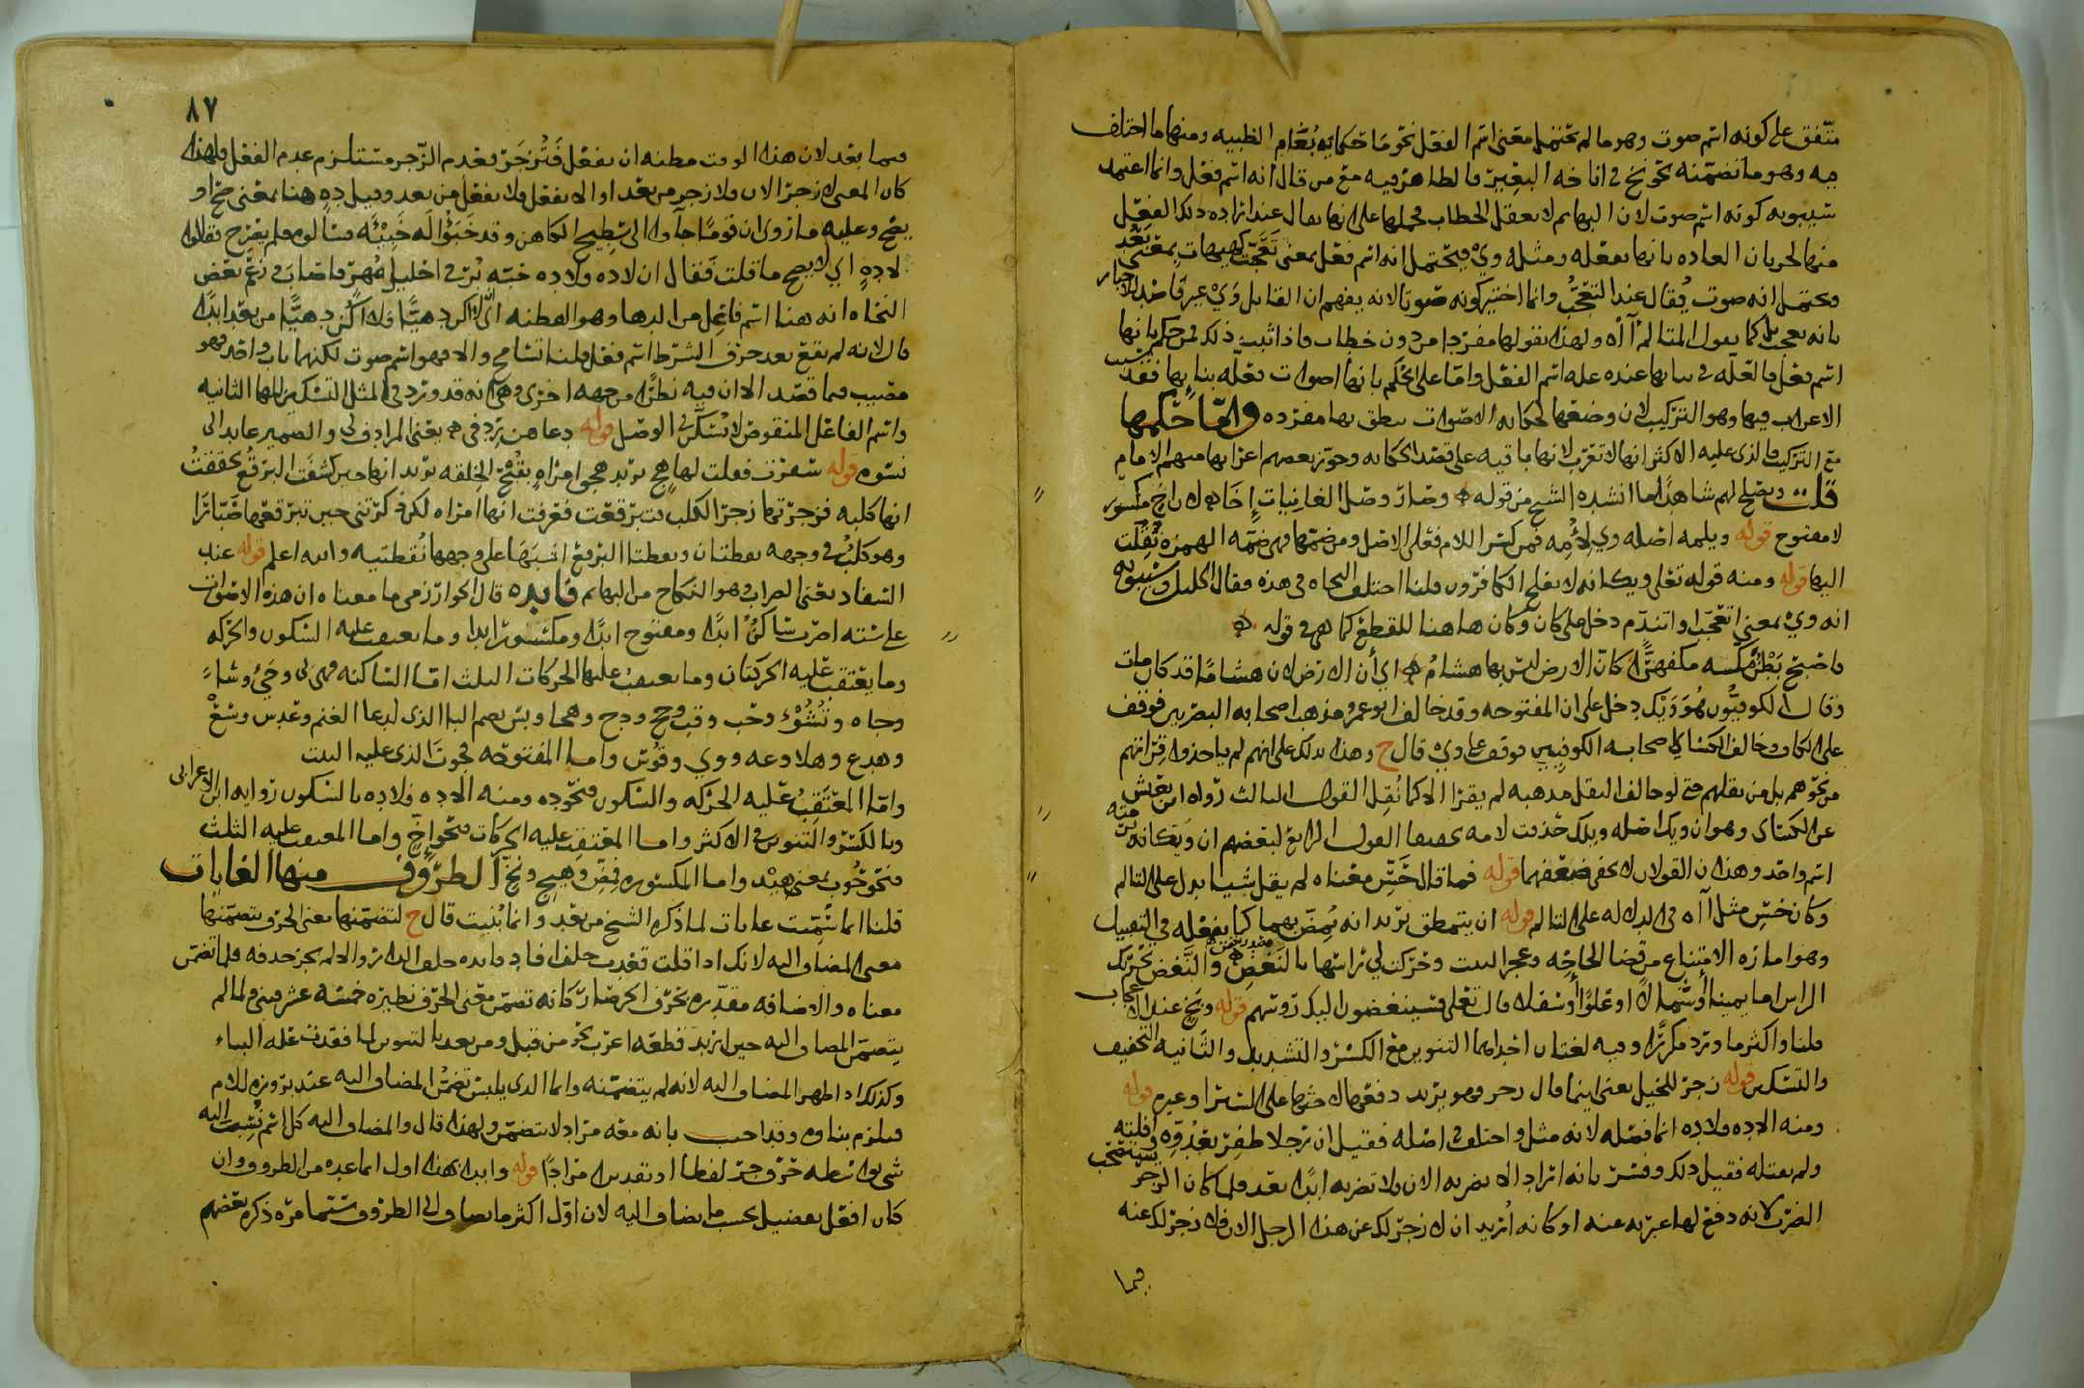 متفق على كونه اسم صوت وهو ما لم يحتمل معنى اسم الفعل نحو ما حكايه بُغَام الظبيه ومنها ما اختلف
فيه وهو ما تضمنه نحو نخ فى اناخه البعير فالظاهر فيه مع من قال انه اسم فعل وانما اعتمد
سيبويه كونه اسم صوت لان البهايم لا تعقل الخطاب فحملها على انها تقال عند اراده ذلك الفعل
منها لجريان العاده بانها تفعله ومثله وي فيحتمل انه اسم فعل بمعنى تعجّبت كهيهات بمعنى بَعُد
ويحتمل انه صوت يُقال عند التعجّب وانما اختير كونه صوتا لانه يفهم ان القايل وَيْ غير قاصد للاخبار
بانه تعجب بل كما يقول المتالم آاه ولهذا يقولها مفردا من دون خطاب فاذا ثبت ذلك فمن حكم بانها
اسم فعل فالعلّه فى بنايها عنده عله اسم الفعل واما على الحكم بانها اصوات فعلّه بنايها فقد سبب
الاعراب فيها وهو التركيب لان وضعها لحكايه الاصوات ينطق بها مفرده واما حكمها
مع التركيب فالذى عليه الاكثر انها لا تعرب لانها باقيه على قصد الحكايه وجوّز بعضهم اعرابها منهم الامام
قلت ويصلح لهم شاهدا ما انشده الشيخ من قوله وصار وصل الغانيات إخَا
لا مفتوح قوله ويلمه اصله وي لأُمِّه فمن كسر اللام فعلى الاصل ومن ضمها فهى ضمّه الهمزه نُقِلت
اليها قوله ومنه قوله تعلى ويكانه لا يفلح الكافرون قلنا اختلف النحاه فى هذه فقال الخليل وسيبويه
انه ويْ بمعنى اتعجّب او اتندّم دخل على كان وكان هاهنا للقطع كما هى فى قوله
فاصبح بَطْنُ مكّه مقشعرًّا كان الارض ليس بها هشامُ اي أن الارض لان هشامًا قد كان مات
وقال الكوفيّون هُوَ وَيْك دخل على ان المفتوحه وقد خالف ابو عمرو مذهب اصحابه البصريين فوقف
على الكاف وخالف الكسائى اصحابه الكوفيين فوقف على وي قال ح وهذا يدلك على انهم لم ياخذوا قراتهم
من نحوهم بل من نقلهم حتى لو خالف النقل مذهبه لم يقرا الا كما نُقِل القول الثالث رواه ابن يعيش
عن الكسائى وهو ان ويك اصله ويلك حُذفت لامه تخفيفا القول الرابع لبعضهم ان ويكانه برمّته
اسم واحد وهذان القولان لا يخفى ضعفهما قوله فما قال حَسّ معناه لم يقل شيا يدل على التالم
وكان حسّ مثل آاه فى الدلاله على التالم قوله ان يتمطق يريد انه يُمِصّ بهما كما يفعله فى التقبيل
وهو اماره الامتناع من قضا الحاجه وعجز البيت وحَرّكت لي راسها بالنَغْضِ والنَّغض تحريك
الراس اما يمينا او شمالا او علوًّا او سفلا قال تعلى فسينغضون اليك روسهم قوله وبَخٍ عند الاعجاب
قلنا واكثر ما ورد مكررًا وفيه لغتان احداهما التنوين مع الكسر والتشديد والثانيه التخفيف
والتسكين قوله زجر للخيل يعنى اينما قال زجر وهو يريد دفعها لا حثها على السير او غيره قوله
ومنه الا ده فلا ده انما فصله لانه مثل واختلف فى اصله فقيل ان رجلا ظفِرَ بعَدُوّه افلته
ولم يقتله فقيل ذلك وفسّر بانه اراد الا تضربه الان فلا تضربه ابدًا بعد فلما كان الزجر يستعقب
الضرب لانه دفع لها عبّر به عنه او كانه أُريد ان لا زجر لك عن هذا الرجل الان فلا زجر لك عنه
فيما
٨٧
فيما بعد لان هذا الوقت مظنه ان تفعل فَتُزجَر فعدم الزجر مستلزم عدم الفعل فلهذا
كان المعنى لا زجر الان فلا زجر من بعد او الا تفعل فلا تفعل من بعد وقيل دِه هنا بمعنى صحّ او
يصح وعليه ما رُوى ان قومًا جاوا الى سَطِيح الكاهن وقد خَبَوُا له خَبِيّه فسالوه فلم يصرّح فقالوا
لا دِهٍ اي لا يصح ما قلت فقال ان لا ده فلا ده حبّه بُرّ فى احليل مُهر فاصاب فى زعم بعض
النحاه انه هنا اسم فاعل من الدها وهو الفطنه اى الا اكن دهيًّا فلا اكن دهيًّا من بعد ابدًا
قال لانه لم يقع بعد حرف الشرط اسم فعل قلنا تسامح والا فهو اسم صوت لكنهما باب واحد فهو
مصيب فيما قصد الا ان فيه نظرًا من جهه اخرى وهى انه قد ورد فى المثل التسكين للها الثانيه
واسم الفاعل المنقوص لا يُسَكّن فى الوصل قوله دعاهن رِدفى يعنى المرادف لى والضمير عايد الى
نسوه قوله سفرت فقلت لها هجٍ يريد هجى امراهٍ بقُبْح الخلقه يريد انها حين كشفت البرقُع تحققتُ
انها كلبه فزجرتها زجر الكلب ثم تبرقعت فعرفت انها امراه لكن ذكّرتنى حين تبرقعها ضَبّارًا
وهو كلبٌ فى وجهه نقطتان ونقطتا البرقع اشبَهَا على وجهها نُقطتيه والله اعلم قوله عند
السفاد يعنى الضراب وهو النكاح من البهايم فايده قال الخوارزمى ما معناه ان هذه الاصوات
على سته اضرب ساكنٌ ابدًا ومفتوح ابدًا ومكسور ابدا وما يعتقب عليه السكون والحركه
وما يعتقب عليه الحركتان وما يعتقب عليها الحركات الثلث اما الساكنه فهى لى وحَيْ وشاءْ
وجاه وتُشُؤْ وحَبْ وقب وحج ودج وهجا وبس بضم البا الذى لدعا الغنم وعدس وسَعْ
وهدع وهلا وعه ووي وقُوس واما المفتوحه فحَوتَ الذى عليه البيت
واما المعتَقِبُ عليه الحركه والسكون فنحو ده ومنه الا ده فلا ده بالسكون روايه ابن الاعرابى
وبالكسر والتنوين فى الاكثر واما المعتقب عليه الحركات فنحو اخٍّ واما المعتقب عليه الثلث
فنحو حُوب بمعنى هِيْد واما المكسوره فمِضِّ وهِيجِ ونخِّ الظروف منها الغايات
قلنا انما سُمّيت غايات لما ذكره الشيخ من بعد وانما بُنيت قال ح لتضمّنها معنى الحرف بتضمّنها
معنى المضاف اليه لانك اذا قلت قعدت خلف فلا فايده خلف الداير والا لم يجز حذفه فلما تضمّن
معناه والاضافه مقدّره بحرف الجر صار كانه تضمّن معنى الحرف نظيره خمسه عشر فبنى ولما لم
يتضمّن المضاف اليه حين اريد قطعه اعرب نحو من قبلٍ ومن بعدٍ بالتنوين لما فقدت عله البناء
وكذلك اذا ظهر المضاف اليه لانه لم يتضمنه وانما الذى يلبس تضمُّن المضاف اليه عند بروزه للام
فيلزم بناوه وقد اجيب بانه معه مراد لا متضمّن ولهذا قال والمضاف اليه كل اسم نُسِبَ اليه
شى بواسطه حرف جر لفظا او تقديرا مرادًا قوله وابدا بهذا اول انما عده من الظروف وان
كان افعل تفضيل بحسب ما يضاف اليه لان اوّل اكثر ما يضاف الى الظروف سيما مرّه ذكره بعضهم